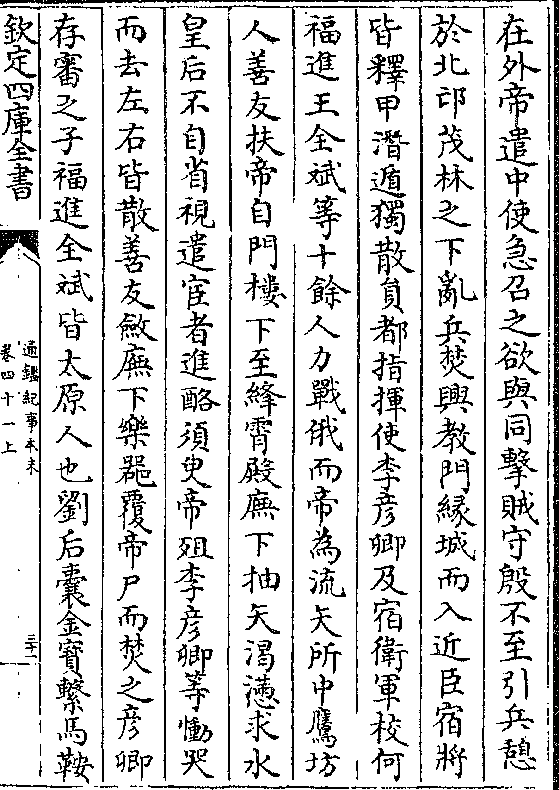 在外帝遣中使急召之欲與同擊賊守殷不至引兵憩
於北邙茂林之下亂兵焚興教門緣城而入近臣宿將
皆釋甲潛遁獨散員都指揮使李彦卿及宿衛軍校何
福進王全斌等十餘人力戰俄而帝為流矢所中鷹坊
人善友扶帝自門樓下至絳霄殿廡下抽矢渴懣求水
皇后不自省視遣宦者進酪須臾帝殂李彦卿等慟哭
而去左右皆散善友斂廡下樂器覆帝尸而焚之彦卿
存審之子福進全斌皆太原人也劉后囊金寶繫馬鞍
欽定四庫全書
通鑑紀事本末
卷四十一上
三十二